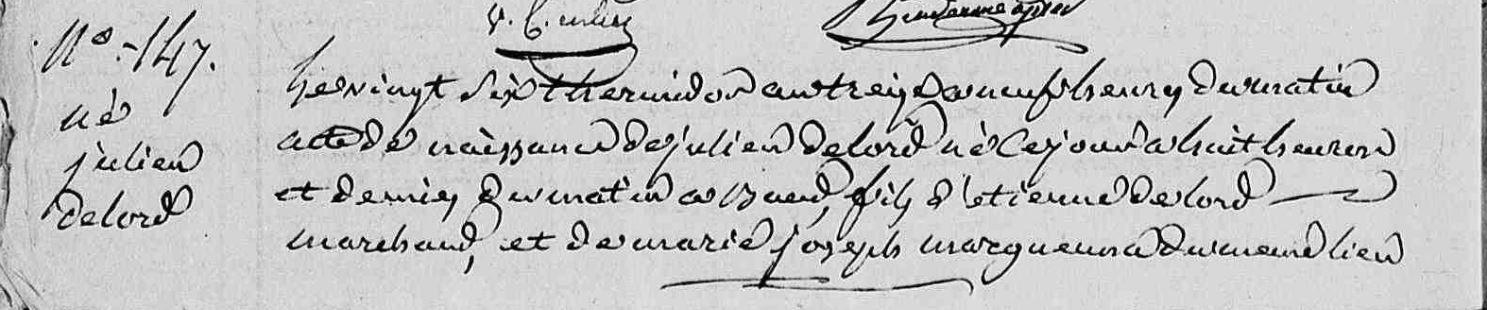 N.º 147.
né
julien
delord
Le vingt six thermidor an treize a neuf heures du matin
acte de naissance de julien delord né Ce jour a huit heures
et demies du matin a fils d'etienne delord
marchand, et de marie joseph du meme lieu